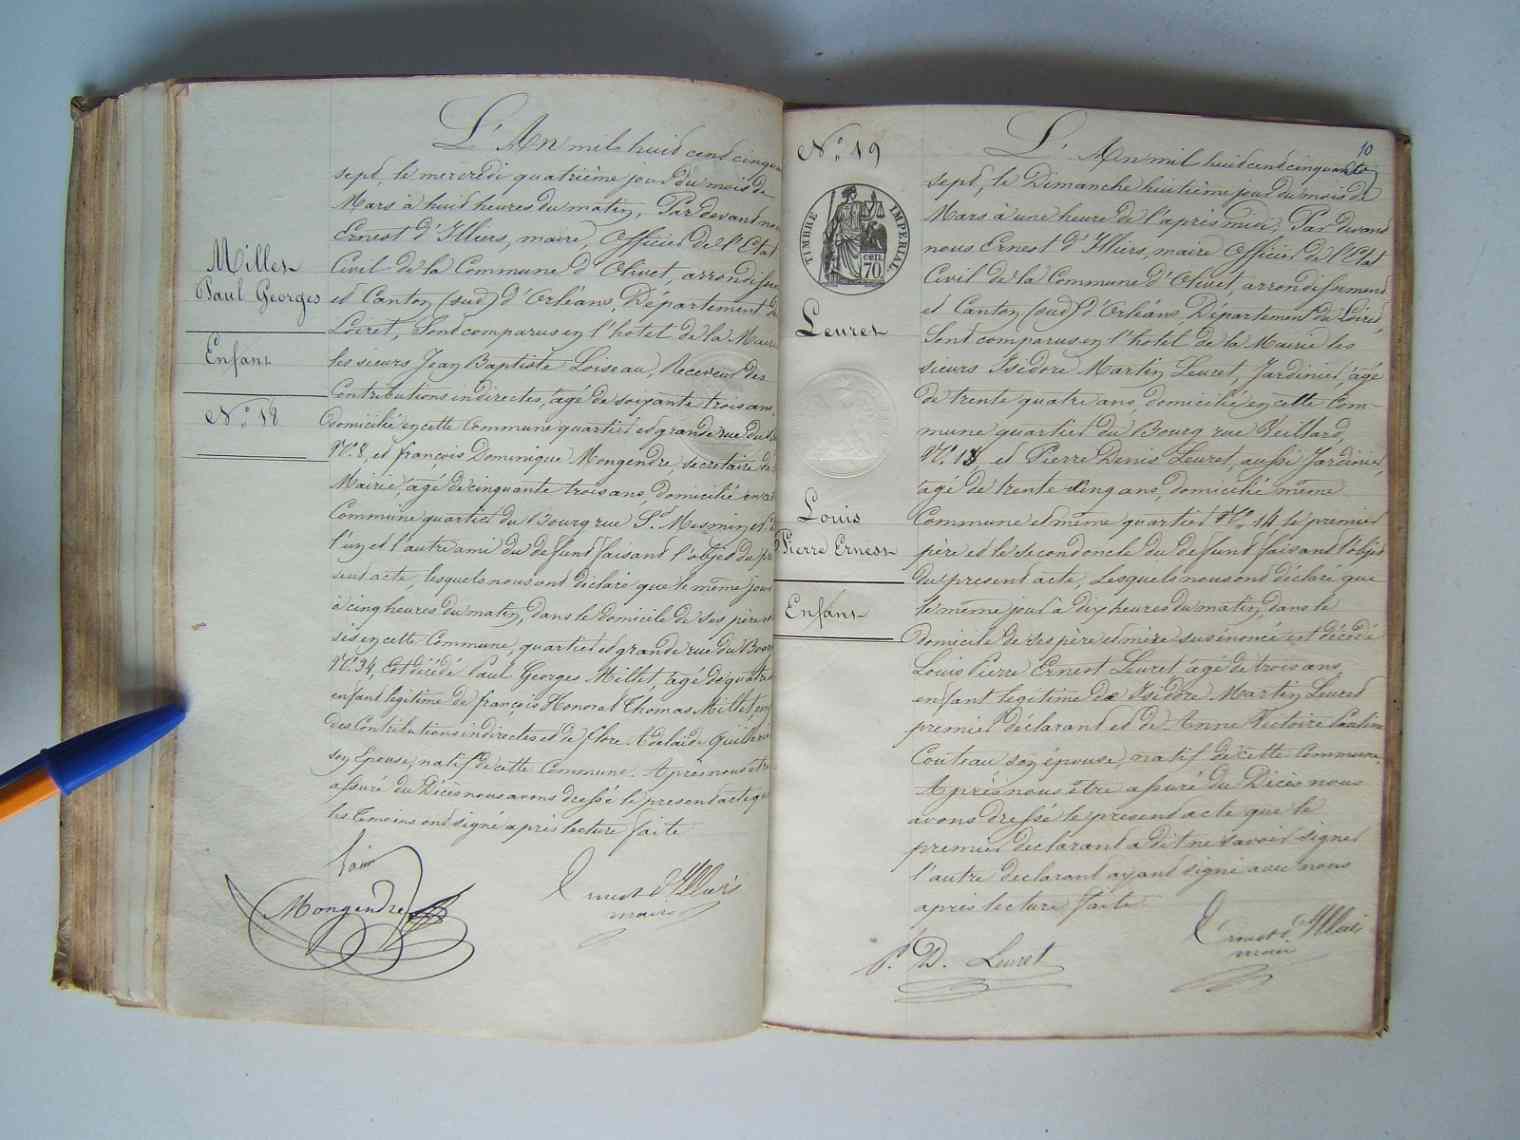 L'An mil huit cent cinquan
sept, le mercredi quatrième jour du mois de
Mars à huit heures du matin, Par devant nous
Ernest d'Illiers, maire, Officier de l'Etat
Civil de la Commune d'Olivet, arrondissem
et Canton (sud) d'Orléans, Département du
Loiret, Sont comparus en l'hôtel de la Mairie
les sieurs Jean Baptiste Loiseau, Receveur des
Contributions indirectes, âgé de soixante trois ans,
domicilié en cette Commune quartier et grande rue du
N.° 8, et françois Dominique Mongendre, secrétaire de
Mairie, âgé de cinquante trois ans, domicilié en
Commune quartier du Bourg rue St. Mesmin
l'un et l'autre ami du défunt faisant l'objet du pré
sent acte, lesquels nous ont déclaré que le même jour
à cinq heures du matin, dans le domicile de ses père et
sis en cette Commune, quartier et grande rue du Bourg
N.° 34, Est décédé Paul Georges Millet, âgé de quatre
enfant légitime de françois Honoré Thomas Millet,
des Contributions indirectes et de flore Adelaïde
son épouse, natif de cette Commune. Après nous être
assuré du Décès nous avons dressé le présent acte que
les témoins ont signé après lecture faite
Mongendre
Ernest d'Illiers
maire
Millet
Paul Georges
Enfant
N.° 18
10
N.° 19
TIMBRE IMPERIAL
70
Leuret
Louis
Pierre Ernest
Enfant
L'An mil huit cent cinquante
sept, le Dimanche huitième jour du mois de
Mars à une heure de l'après midi, Par devant
nous Ernest d'Illiers, maire Officier de l'Etat
Civil de la Commune d'Olivet, arrondissement
et Canton (sud) d'Orléans, Département du Loiret,
Sont comparus en l'hôtel de la Mairie les
sieurs Isidore Martin Leuret, Jardinier, âgé
de trente quatre ans, domicilié en cette Com-
mune quartier du Bourg rue Veillard,
N.° 18 et Pierre Denis Leuret, aussi Jardinier,
âgé de trente cinq ans, domicilié même
Commune et même quartier N.° 14 le premier
père et le second oncle du défunt faisant l'objet
du présent acte, Lesquels nous ont déclaré que
le même jour à dix heures du matin, dans le
domicile de ses père et mère susénoncé est décédé
Louis Pierre Ernest Leuret âgé de trois ans
enfant légitime de Isidore Martin Leuret
premier déclarant et de Anne Victoire Pauline
Couteau son épouse, natif de cette Commune,
Après nous être assuré du Décès nous
avons dressé le présent acte que le
premier déclarant a dit ne savoir signer
l'autre déclarant ayant signé avec nous
après lecture faite
P. D. Leuret
Ernest d'Illiers
maire